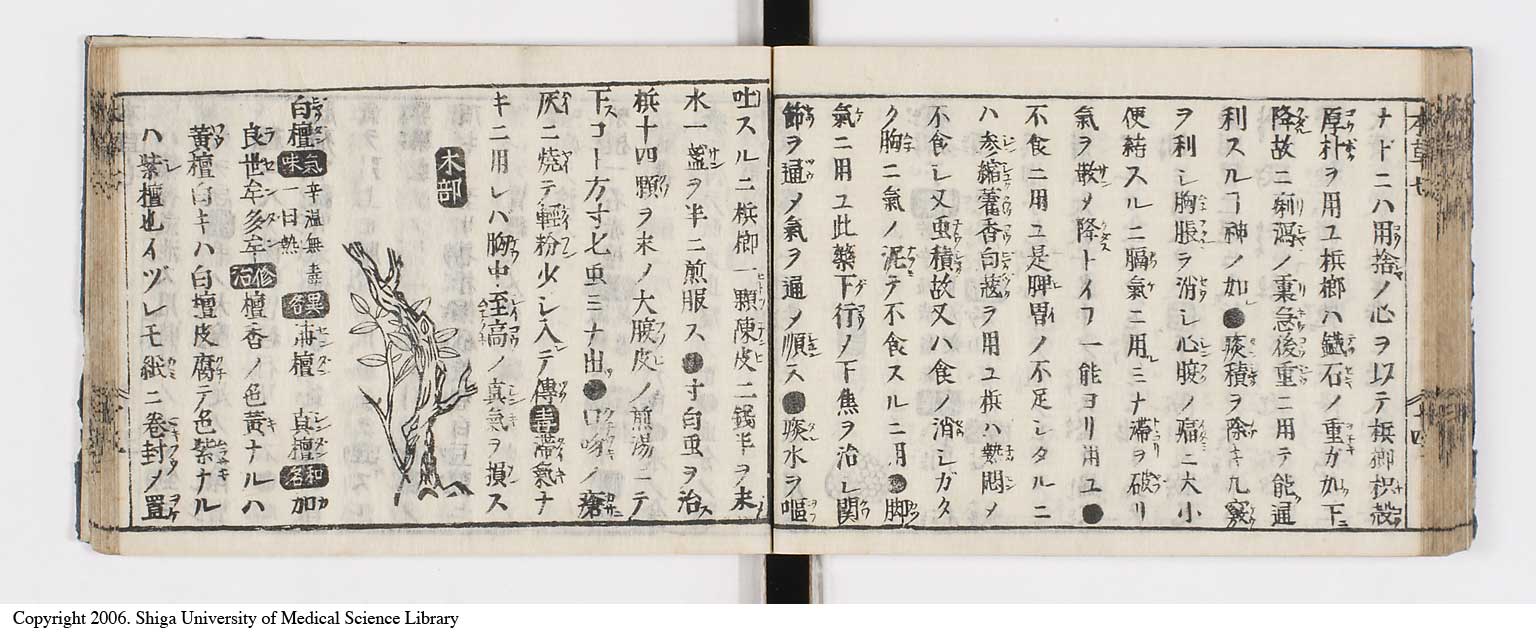 ナドニハ用捨ノ心ヲ以テ梹榔枳殻
厚朴ヲ用ユ梹榔ハ鐵石ノ重ガ如下
降故ニ痢瀉ノ裏急後重ニ用テ能通
利スルヿ神ノ如●痰積ヲ除キ九竅
ヲ利シ胸脹ヲ消シ心腹ノ痛ニ大小
便結スルニ膈氣ニ用ミナ滞ヲ破リ
氣ヲ散メ降トイフ一能ヨリ用ユ●
不食ニ用ユ是脾胃ノ不足シタルニ
ハ参縮藿香白蔲ヲ用ユ梹ハ熱悶メ
不食シ又重積故又ハ食ノ消シガタ
ク胸ニ氣ノ泥テ不食スルニ用●脚
氣ニ用ユ此藥下行ノ下焦ヲ治シ関
節ヲ通メ氣ヲ通メ順ス●痰水ヲ嘔
吐スルニ梹榔一顆陳皮二錢半ヲ末
水一盞ヲ半ニ煎服ス●寸白虫ヲ治
梹十四顆ヲ末ノ大腹皮ノ煎湯ニテ
下コト方寸七虫ミナ出●口吻ノ瘡
灰ニ燒テ輕粉少シ入テ傅毒滞氣ナ
キニ用レハ胸中至高ノ真氣ヲ損ス
木部
白檀 氣味 辛温無毒 一曰熱 異名 旃檀 真檀 和名 加
良世牟多牟 修治 檀香ノ色黄ナルハ
黄檀白キハ白檀皮腐テ色紫ナル
ハ紫檀也イツレモ紙ニ卷封ノ置
Copyright 2006. Shiga University of Medical Science Library